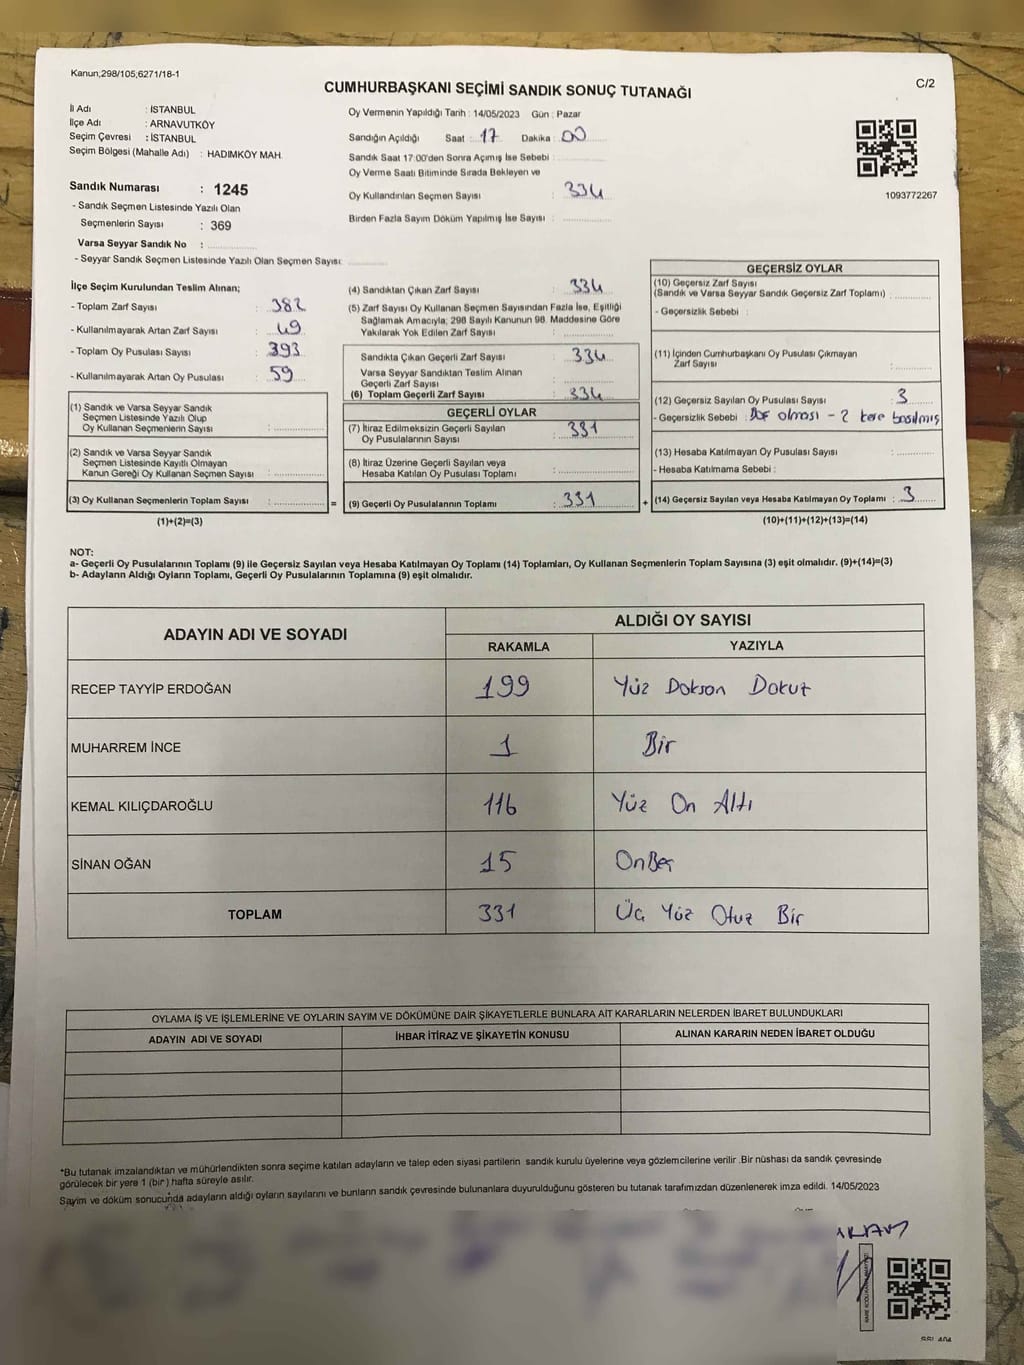 Kanun;298/105;6271/18-1
CUMHURBAŞKANI SEÇİMİ SANDIK SONUÇ TUTANAĞI
C/2
İl Adı : İSTANBUL
İlçe Adı : ARNAVUTKÖY
Seçim Çevresi : İSTANBUL
Seçim Bölgesi (Mahalle Adı) : HADIMKÖY MAH.
Sandık Numarası : 1245
- Sandık Seçmen Listesinde Yazılı Olan
Seçmenlerin Sayısı : 369
Varsa Seyyar Sandık No :
- Seyyar Sandık Seçmen Listesinde Yazılı Olan Seçmen Sayısı:
Oy Vermenin Yapıldığı Tarih : 14/05/2023 Gün : Pazar
Sandığın Açıldığı Saat : 17 Dakika : 00
Sandık Saat 17:00'den Sonra Açımış İse Sebebi :
Oy Verme Saati Bitiminde Sırada Bekleyen ve
Oy Kullandırılan Seçmen Sayısı : 334
Birden Fazla Sayım Döküm Yapılmış İse Sayısı :
1093772267
İlçe Seçim Kurulundan Teslim Alınan;
- Toplam Zarf Sayısı : 382
- Kullanılmayarak Artan Zarf Sayısı : 49
- Toplam Oy Pusulası Sayısı : 393
- Kullanılmayarak Artan Oy Pusulası : 59
(1) Sandık ve Varsa Seyyar Sandık
Seçmen Listesinde Yazılı Olup
Oy Kullanan Seçmenlerin Sayısı :
(2) Sandık ve Varsa Seyyar Sandık
Seçmen Listesinde Kayıtlı Olmayan
Kanun Gereği Oy Kullanan Seçmen Sayısı :
(3) Oy Kullanan Seçmenlerin Toplam Sayısı : =
(1)+(2)=(3)
(4) Sandıktan Çıkan Zarf Sayısı : 334
(5) Zarf Sayısı Oy Kullanan Seçmen Sayısından Fazla İse, Eşitliği
Sağlamak Amacıyla; 298 Sayılı Kanunun 98. Maddesine Göre
Yakılarak Yok Edilen Zarf Sayısı :
Sandıkta Çıkan Geçerli Zarf Sayısı : 334
Varsa Seyyar Sandıktan Teslim Alınan
Geçerli Zarf Sayısı :
(6) Toplam Geçerli Zarf Sayısı : 334
GEÇERLİ OYLAR
(7) İtiraz Edilmeksizin Geçerli Sayılan
Oy Pusulalarının Sayısı : 331
(8) İtiraz Üzerine Geçerli Sayılan veya
Hesaba Katılan Oy Pusulası Toplamı :
(9) Geçerli Oy Pusulalarının Toplamı : 331 +
GEÇERSİZ OYLAR
(10) Geçersiz Zarf Sayısı
(Sandık ve Varsa Seyyar Sandık Geçersiz Zarf Toplamı) :
- Geçersizlik Sebebi :
(11) İçinden Cumhurbaşkanı Oy Pusulası Çıkmayan
Zarf Sayısı :
(12) Geçersiz Sayılan Oy Pusulası Sayısı : 3
- Geçersizlik Sebebi : Boş olması - 2 kere basılmış
(13) Hesaba Katılmayan Oy Pusulası Sayısı :
- Hesaba Katılmama Sebebi :
(14) Geçersiz Sayılan veya Hesaba Katılmayan Oy Toplamı : 3
(10)+(11)+(12)+(13)=(14)
NOT:
a- Geçerli Oy Pusulalarının Toplamı (9) ile Geçersiz Sayılan veya Hesaba Katılmayan Oy Toplamı (14) Toplamları, Oy Kullanan Seçmenlerin Toplam Sayısına (3) eşit olmalıdır. (9)+(14)=(3)
b- Adayların Aldığı Oyların Toplamı, Geçerli Oy Pusulalarının Toplamına (9) eşit olmalıdır.
ADAYIN ADI VE SOYADI
ALDIĞI OY SAYISI
RAKAMLA YAZIYLA
RECEP TAYYİP ERDOĞAN 199 Yüz Dokson Dokuz
MUHARREM İNCE 1 Bir
KEMAL KILIÇDAROĞLU 116 Yüz On Altı
SİNAN OĞAN 15 OnBeş
TOPLAM 331 Üç Yüz Otuz Bir
OYLAMA İŞ VE İŞLEMLERİNE VE OYLARIN SAYIM VE DÖKÜMÜNE DAİR ŞİKAYETLERLE BUNLARA AİT KARARLARIN NELERDEN İBARET BULUNDUKLARI
ADAYIN ADI VE SOYADI İHBAR İTİRAZ VE ŞİKAYETİN KONUSU ALINAN KARARIN NEDEN İBARET OLDUĞU
*Bu tutanak imzalandıktan ve mühürlendikten sonra seçime katılan adayların ve talep eden siyasi partilerin sandık kurulu üyelerine veya gözlemcilerine verilir .Bir nüshası da sandık çevresinde
görülecek bir yere 1 (bir) hafta süreyle asılır.
Sayım ve döküm sonucunda adayların aldığı oyların sayılarını ve bunların sandık çevresinde bulunanlara duyurulduğunu gösteren bu tutanak tarafımızdan düzenlenerek imza edildi. 14/05/2023